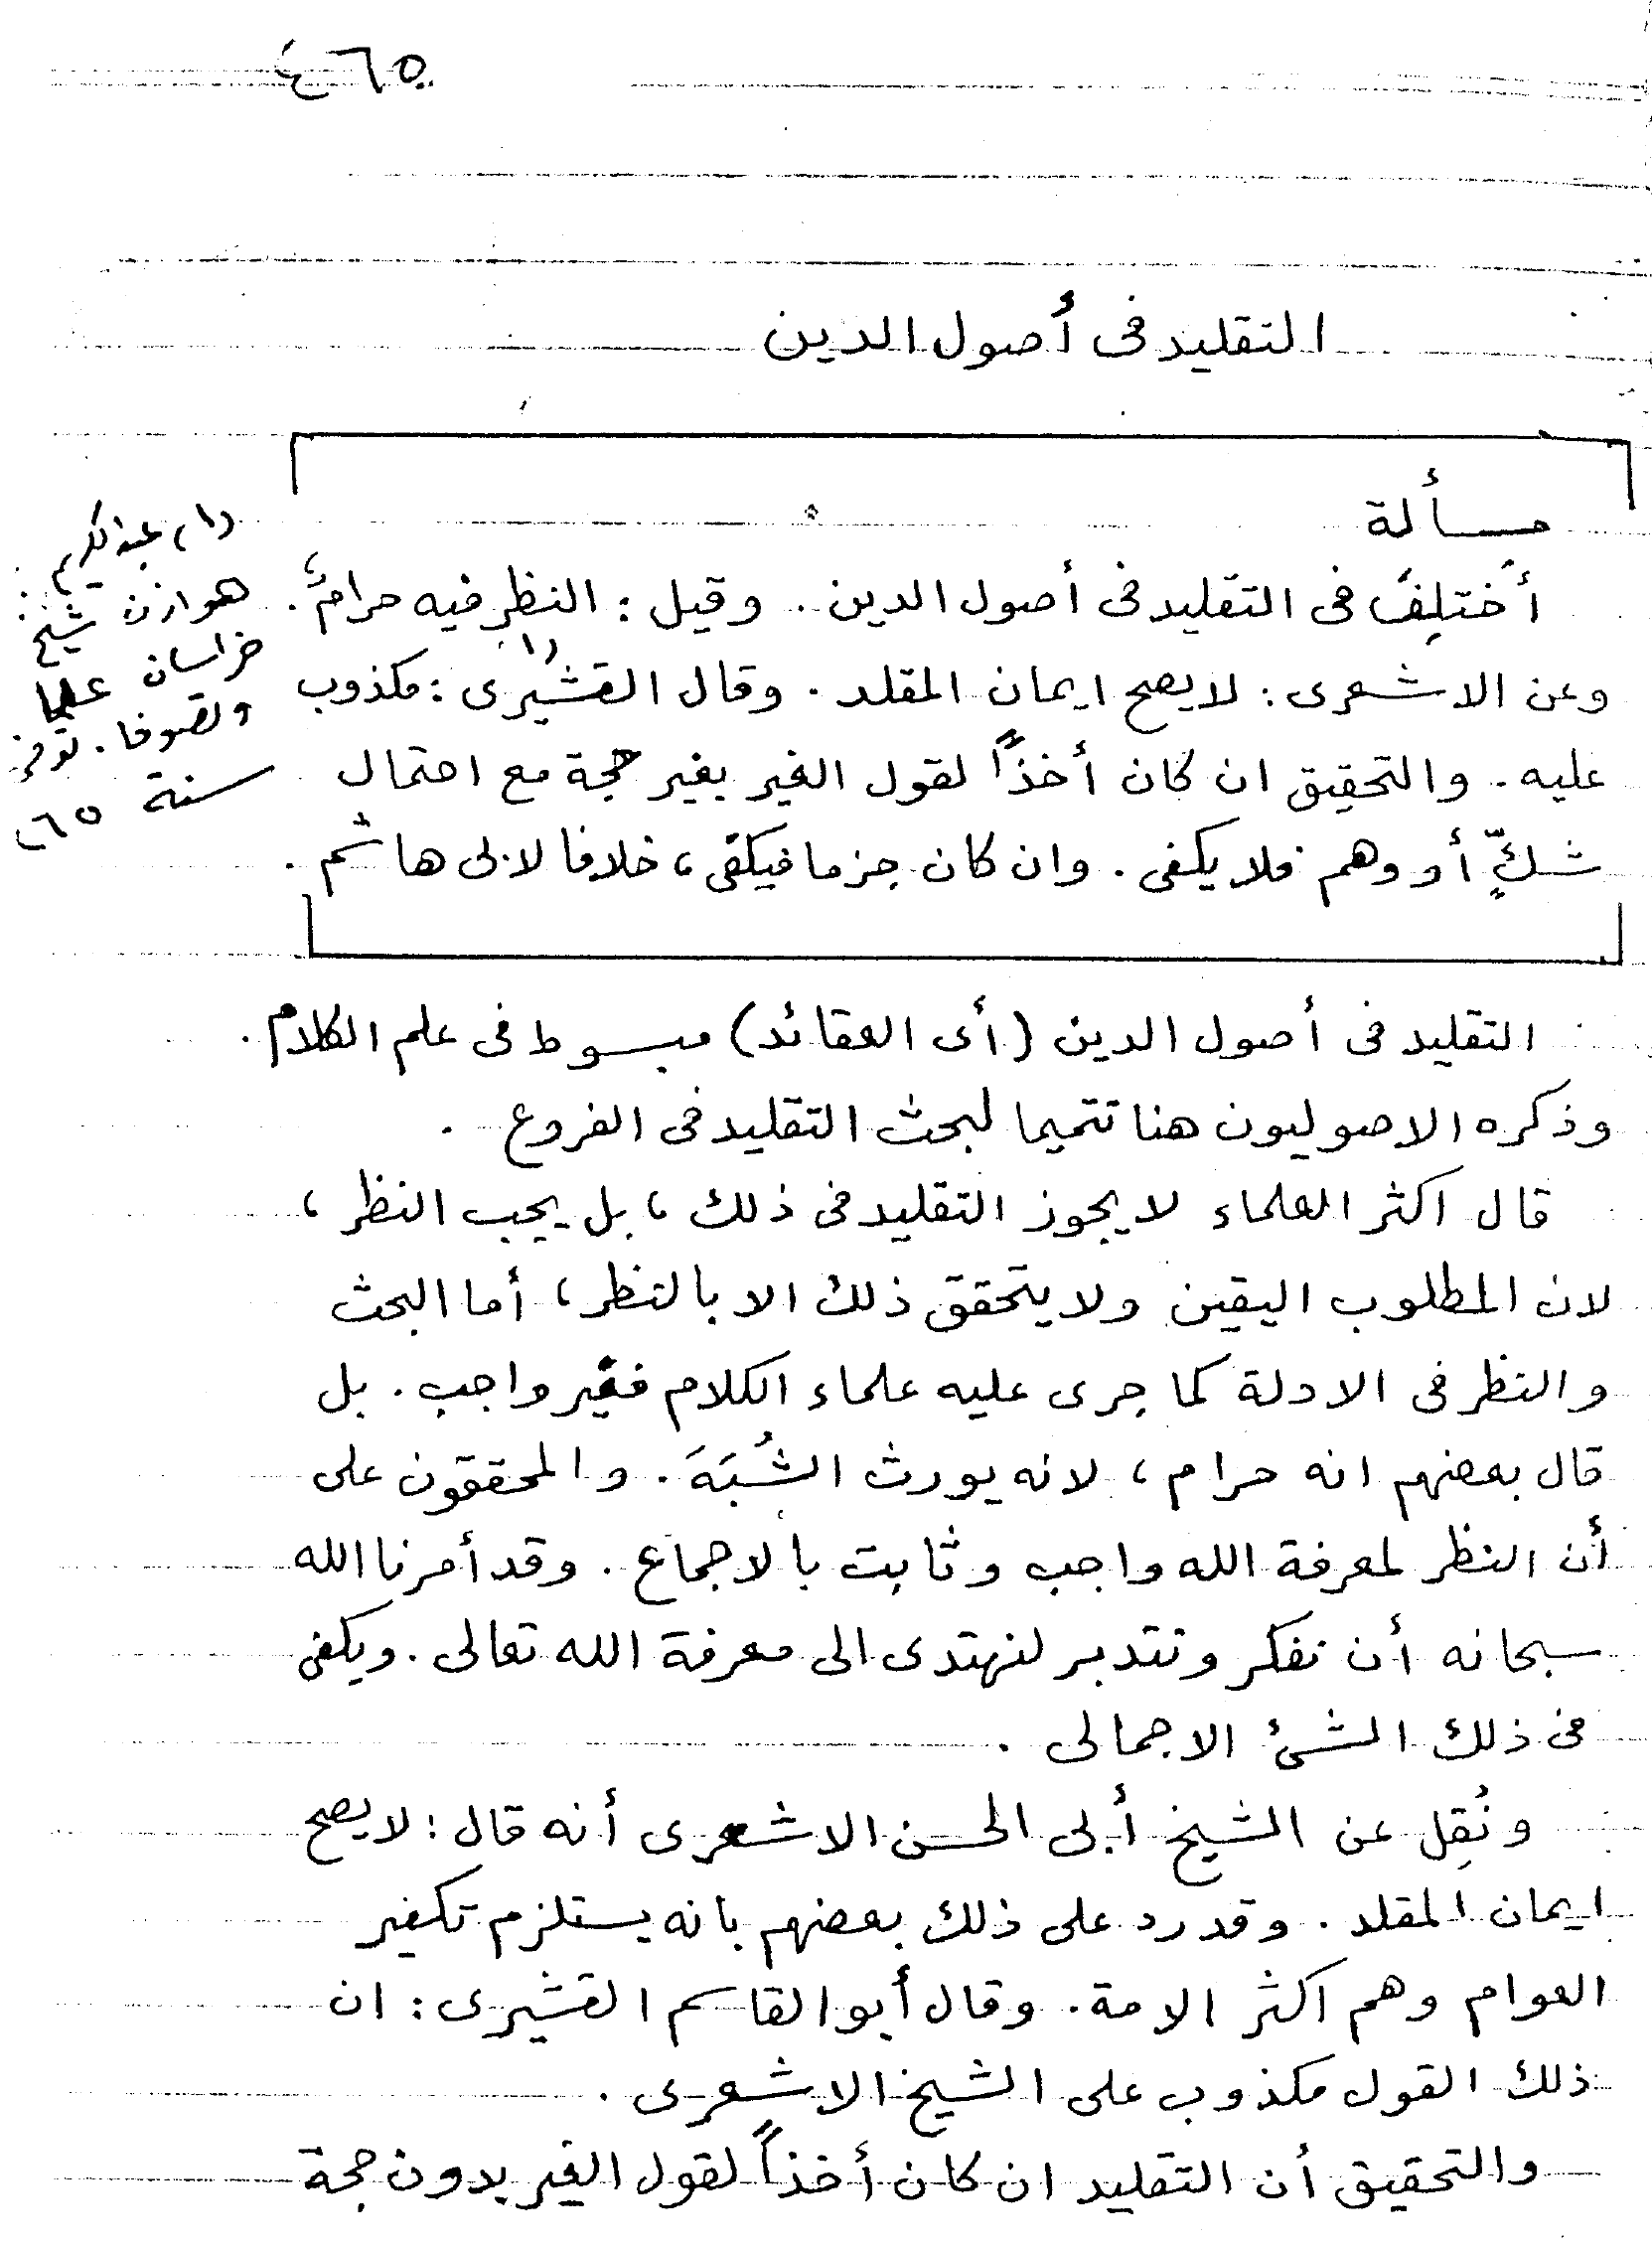 ٤٦٥
التقليد فى أصول الدين
مسألة
أُختلِفَ فى التقليد فى أصول الدين . وقيل : النظر فيه حرامٌ ،
وعن الاشعرى : لا يصح ايمان المقلد . وقال القشيرى (١) : مكذوب
عليه . والتحقيق ان كان أخذاً لقول الغير بغير حجة مع احتمال
شكٍّ أو وهم فلا يكفى . وان كان جزما فيكفى ، خلافا لابى هاشم .
(١) عبدالكريم
هوازن شيخ
خراسان علما
وتصوفا . توفى
سنة ٤٦٥
التقليد فى أصول الدين (أى العقائد) مبسوط فى علم الكلام .
وذكره الاصوليون هنا تتميما لبحث التقليد فى الفروع .
قال اكثر العلماء لا يجوز التقليد فى ذلك ، بل يجب النظر ،
لان المطلوب اليقين ولا يتحقق ذلك الا بالنظر ، أما البحث
والنظر فى الادلة كما جرى عليه علماء الكلام فغير واجب . بل
قال بعضهم انه حرام ، لانه يورث الشُبَهَ . والمحققون على
أن النظر لمعرفة الله واجب وثابت بالاجماع . وقد أمرنا الله
سبحانه أن نفكر ونتدبر لنهتدى الى معرفة الله تعالى . ويكفى
فى ذلك الشئ الاجمالى .
ونُقِل عن الشيخ أبى الحسن الاشعرى أنه قال : لا يصح
ايمان المقلد . وقد رد على ذلك بعضهم بانه يستلزم تكفير
العوام وهم اكثر الامة . وقال أبو القاسم القشيرى : ان
ذلك القول مكذوب على الشيخ الاشعرى .
والتحقيق أن التقليد ان كان أخذاً لقول الغير بدون حجة